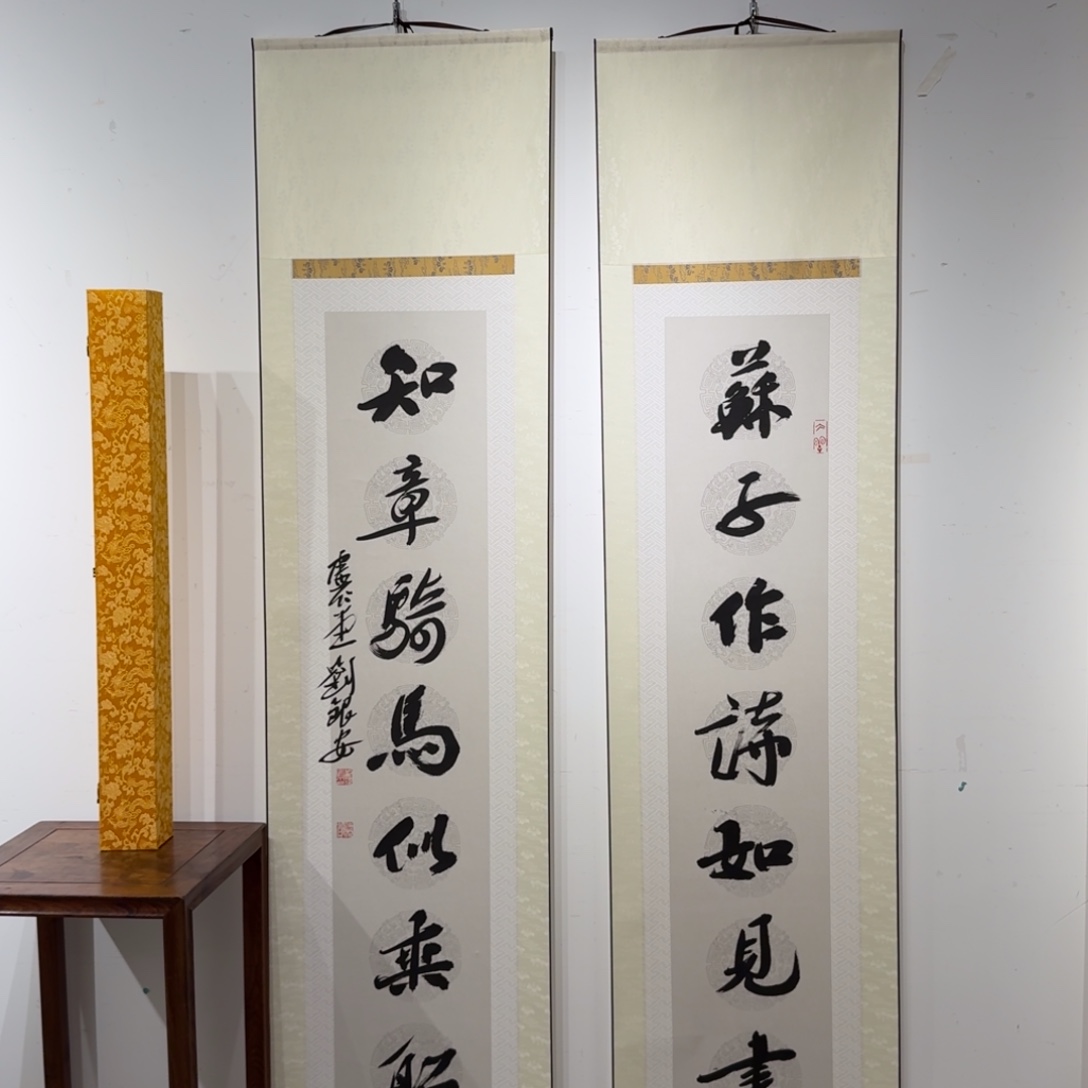 蘇子作詩如見
知章騎馬似乘
劉銀安